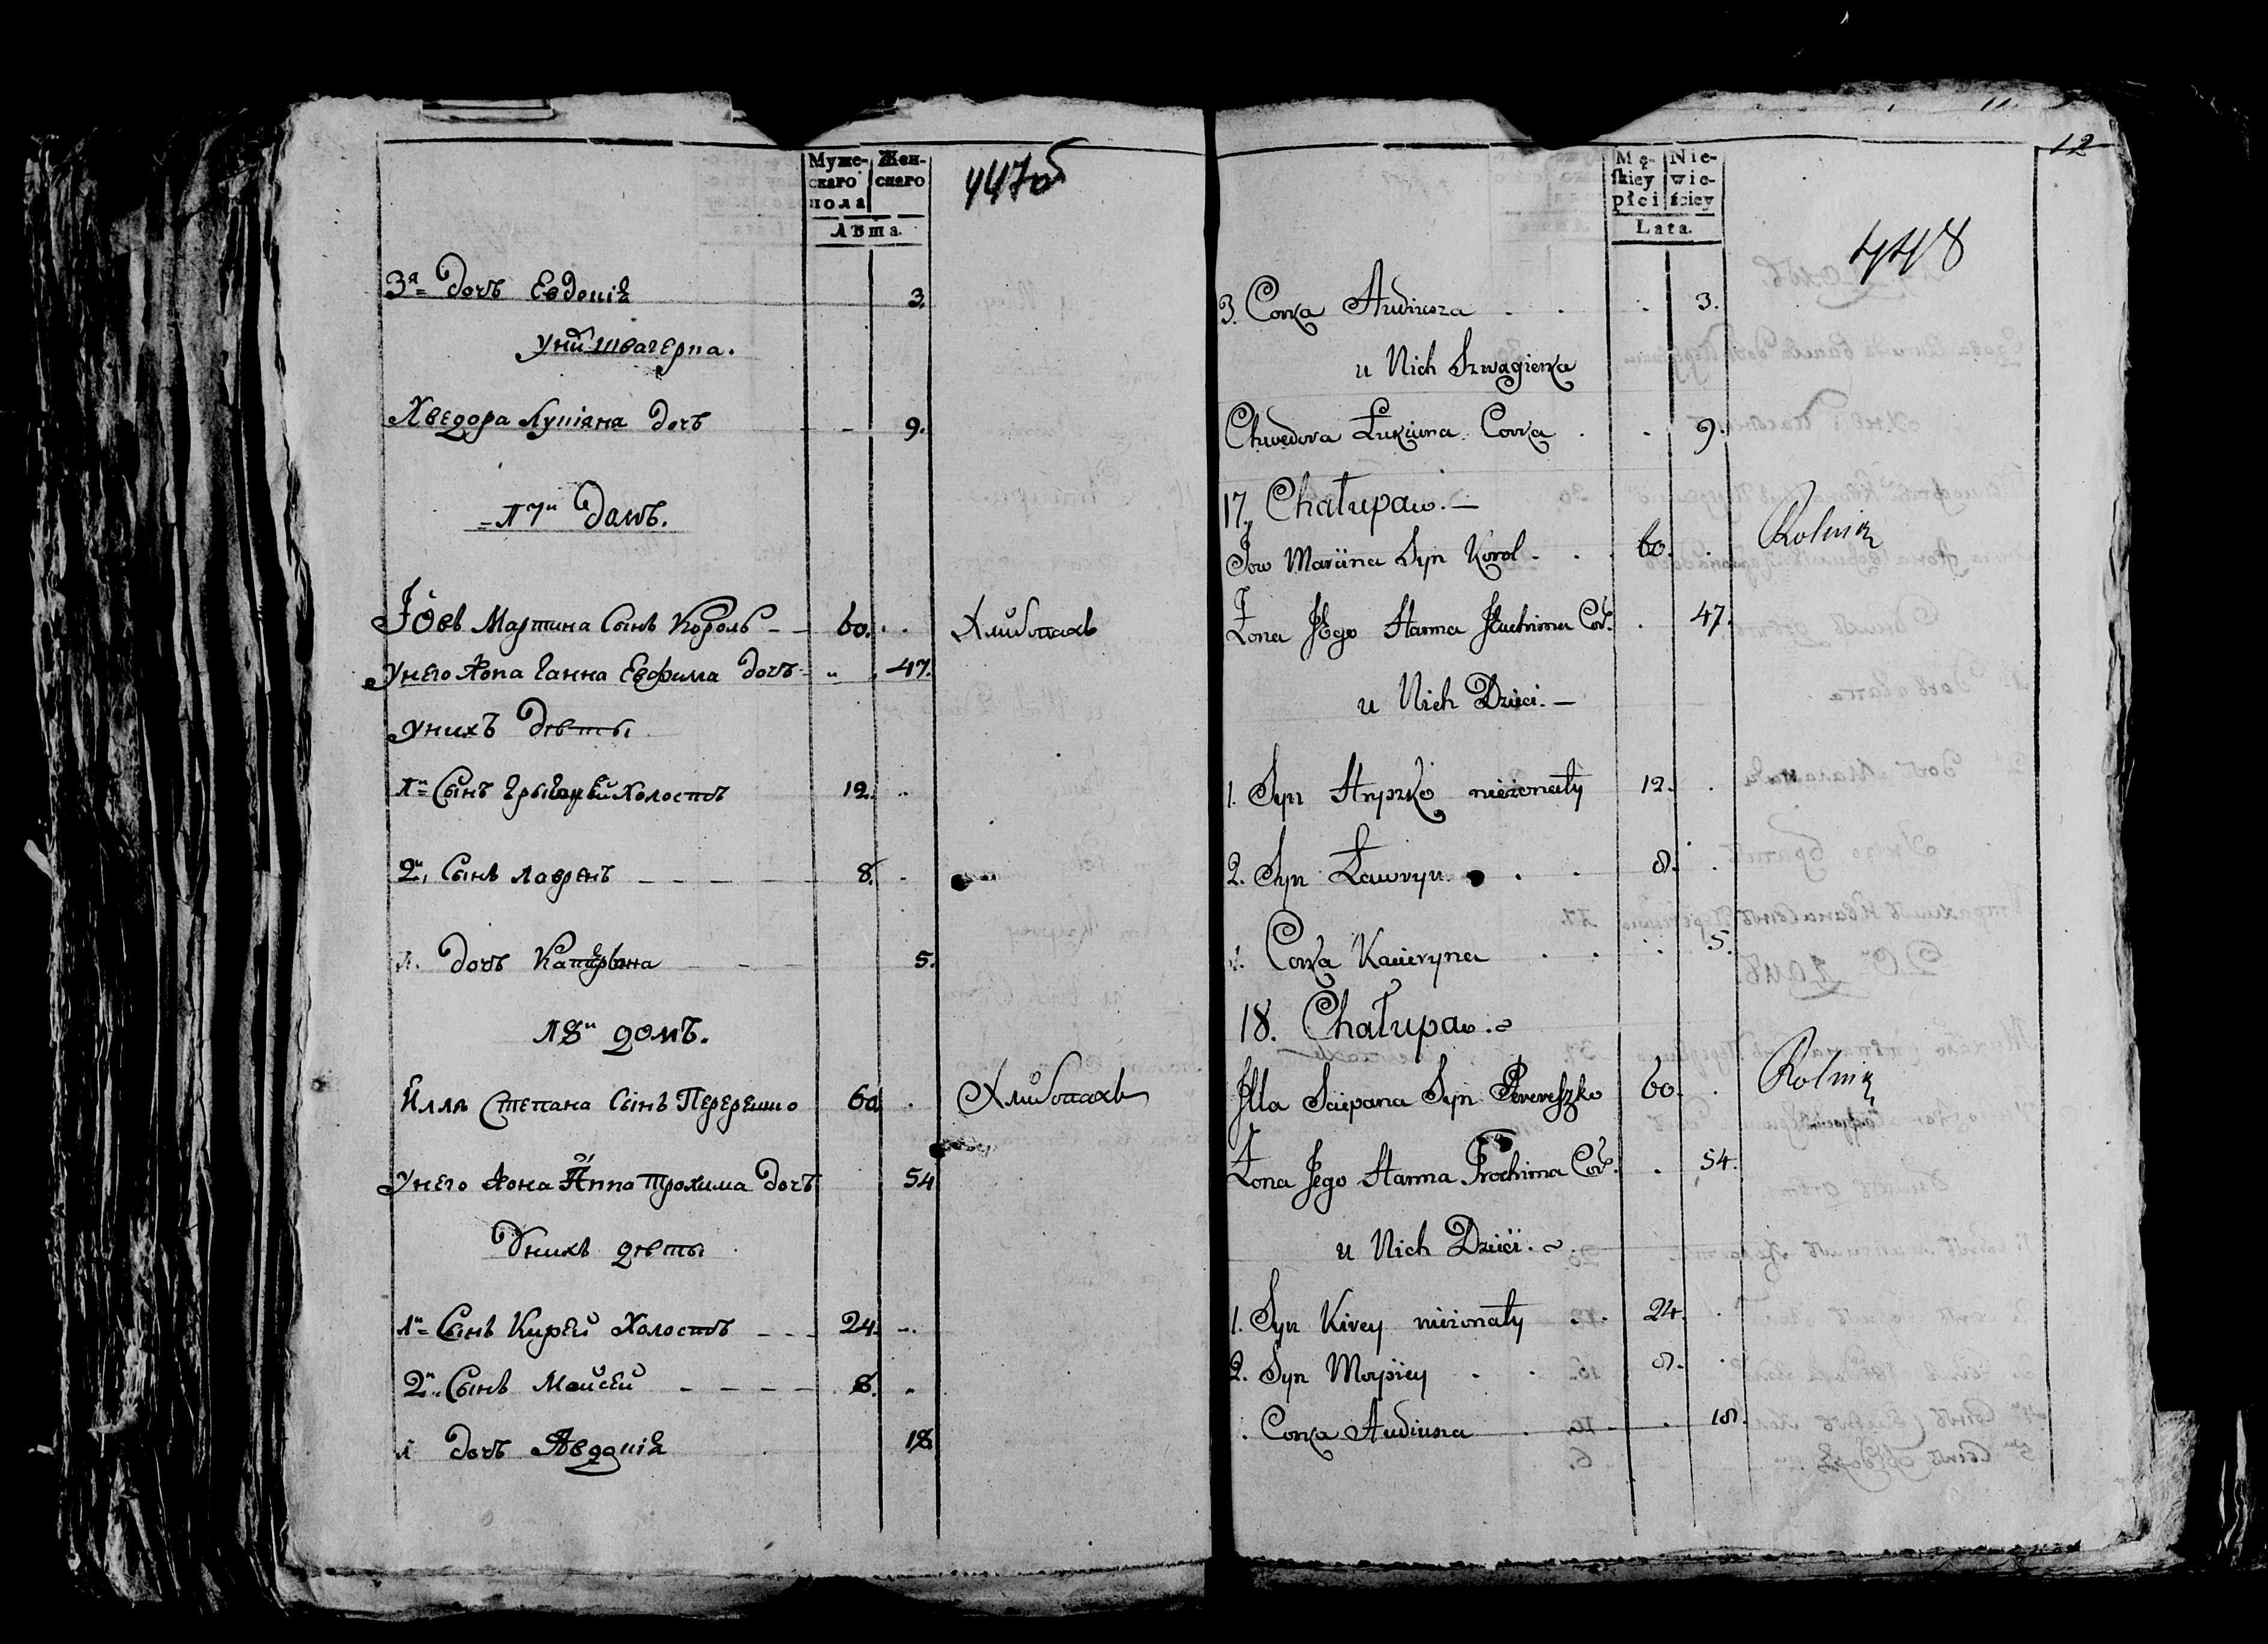 Муже-
скаго
пола
Жен-
скаго
Лѣта.
447об
3я дочь Евдокія
у ни швагерка.
3.
Хведора Лукіяна дочь 9.
17й Домъ.
Іовъ Мартина Сынъ Король 60. Хлибопахъ
унего Жона Ганна Евфима дочь 47.
унихъ дѣти
1й Сынъ Грыгорей Холостъ 12.
2й Сынъ Лаврѣнъ 8.
1. дочь Катерына 5.
18й домъ.
Илля Степана Сынъ 60 Хлибопахъ
унего Жона Анна Трохима дочь 54
Униxъ дѣти
1й Сынъ Кирей Холостъ 24.
2й Сынъ Мойсей 8.
1 дочь Авдокія 18
12
Mę-
skiey
płci
Nie-
wie-
ściey
Lata.
448
3. Corka Audiusza 3.
u Nich Szwagierka
Chwedora Łukiana Corka 9.
17. Chałupa.
Jow Marcina Syn Korol 60. Rolnik
Żona Jego Hanna Jeuchima Cor. 47.
u Nich Dzieci.
1. Syn Hryszko nieżonaty 12.
2. Syn Ławryn 8.
1. Corka Kateryna 5.
18. Chałupa.
Illa Sciepana Syn 60. Rolnik
Żona Jego Hanna Trochima Cor. 54.
u Nich Dzieci.
1. Syn Kirey nieżonaty 24.
2. Syn Moysiey 8.
Corka Audiusza 18.